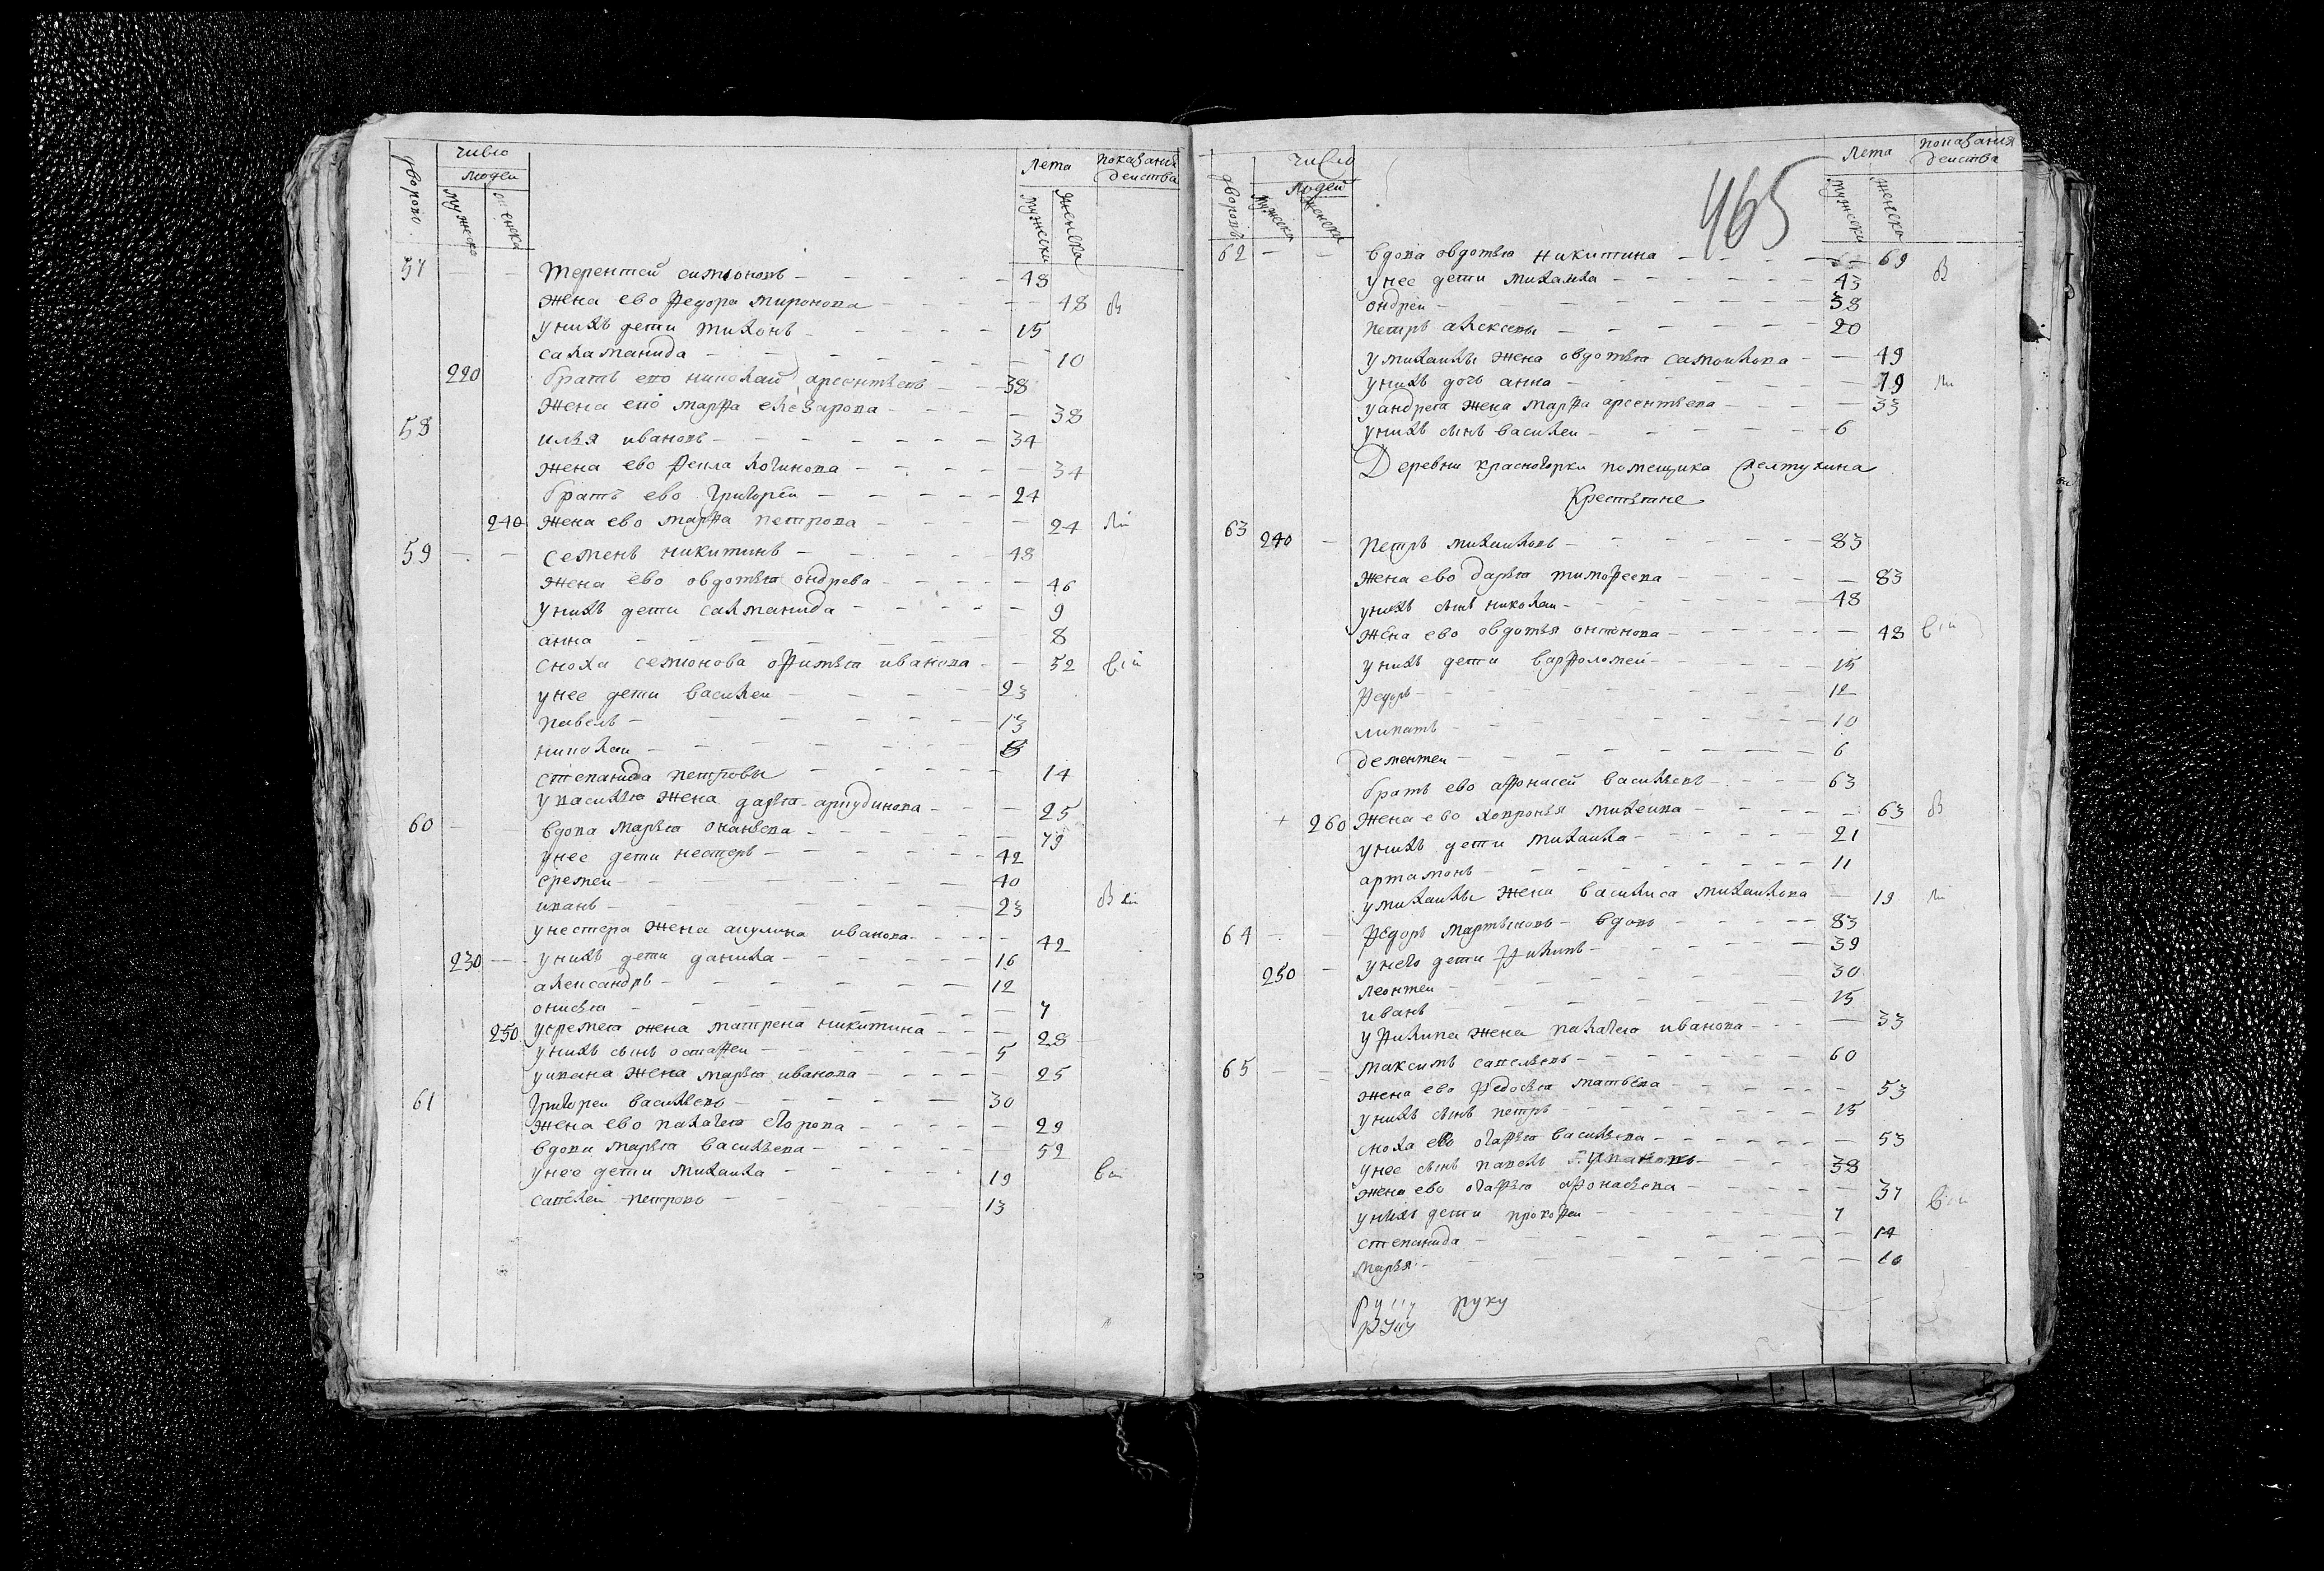 дворовъ число людей мужеска женска лета мужески женска показания действа
57 Терентей симионовъ 48
жена ево Федора миронова 48
унихъ дети тихонъ 15
саламанида 10
220 братъ ево николай арсентьевъ 38
жена ево марфа елезарова 38
58 илья ивановъ 34
жена ево Фекла логинова 34
братъ ево григорей 24
240 жена ево марфа петрова 24
59 семенъ никитинъ 48
жена ево овдотья ондрева 46
унихъ дети салманида 9
анна 8
сноха семионова офимья иванова 52
унее дети василей 23
павелъ 13
николаи
степанида петровы 14
увасилья жена дарья 25
60 вдова марья 79
унее дети нестеръ 42
еремеи 40
иванъ 23
унестера жена акулина иванова 42
230 унихъ дети данила 16
александръ 12
онисья 7
250 уеремея жена матрена никитина 28
унихъ сынъ остафеи 5
уивана жена марья иванова 25
61 григореи васильевъ 30
жена ево палагея егорова 29
вдова марья васильева 52
унее дети михаила 19
савелеи петровы 13
465
дворовъ число людей мужеска женска лета мужески женска показания действа
62 вдова овдотья никитина 69
унее дети михаила 43
ондреи 38
петръ алексевы 20
умихаилы жена овдотья самоилова 49
унихъ дочь анна 19
уандрея жена марфа арсентьева 33
унихъ сынъ василеи 6
Деревни красногорки помещика желтухина
Крестьяне
63 240 Петръ михаиловъ 83
жена ево дарья тимофеева 83
унихъ сынъ николаи 48
жена ево овдотья онтонова 48
унихъ дети варфоломеи 15
Федоръ 12
липатъ 10
дементеи 6
братъ ево афонасей васильевъ 63
260 жена ево михеива 63
унихъ дети михаила 21
артамонъ 11
умихаилы жена василиса михаилова 19
64 Федоръ мартыновъ вдовъ 83
унего дети Филипъ 39
250 леонтеи 30
иванъ 15
уфилипа жена палагея иванова 33
65 максимъ савельевъ 60
жена ево Федосья матвева 53
унихъ сынъ петръ 15
сноха ево огафья васильева 53
унее сынъ павелъ 38
жена ево огафья афонасьева 37
унихъ дети прокофеи 7
степанида 14
марья 10
руку